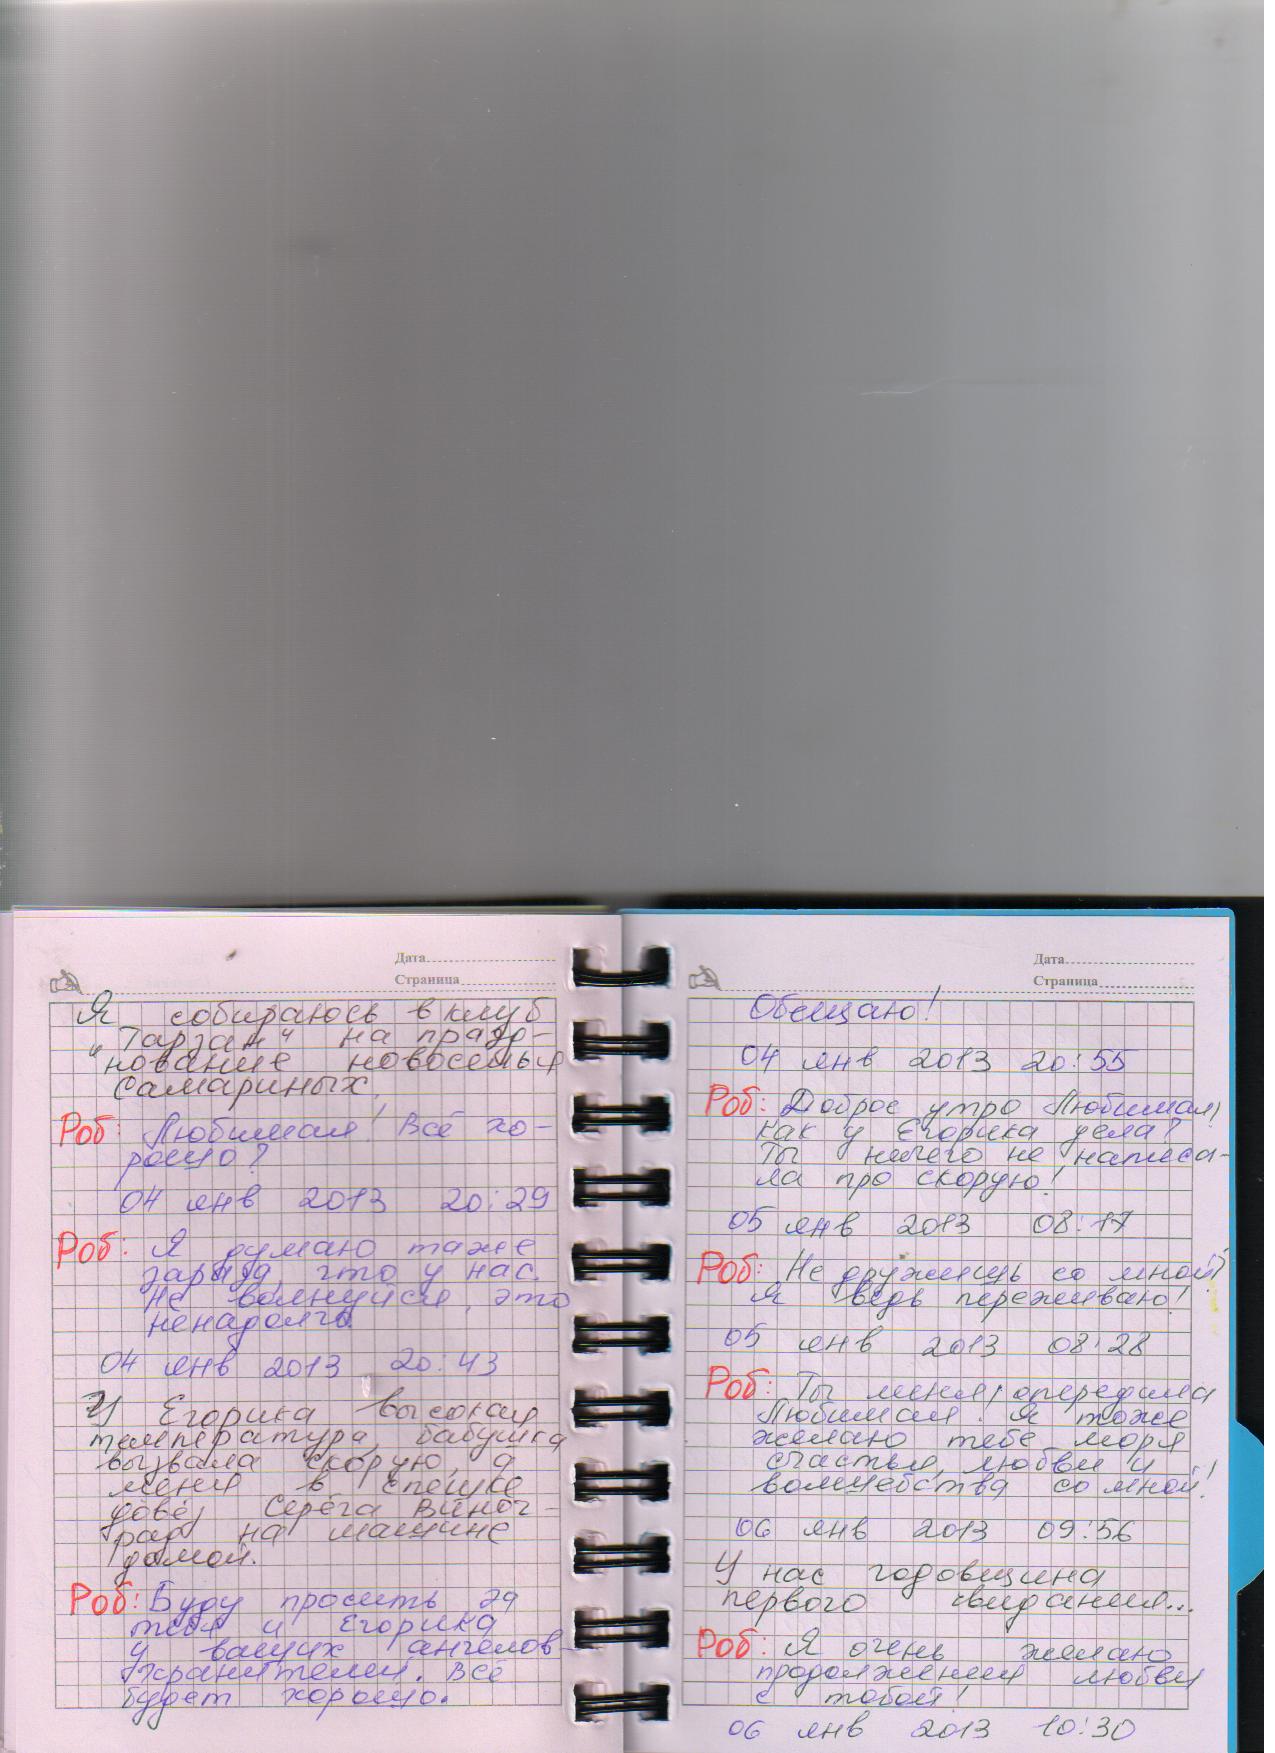 Дата
Страница
Я собираюсь в клуб
"Тарзан" на празд-
нование новоселья
Самариных.
Роб: Любимая! Всё хо-
рошо?
04 янв 2013 20:29
Роб: Я думаю также
заряд, что у нас.
Не волнуйся, это
ненадолго.
04 янв 2013 20:43
У Егорика высокая
температура, бабушка
вызвала скорую, а
меня в спешке
довёз Серёга Виног-
рад на машине
домой.
Роб: Буду просить за
тебя и Егорика
у ваших ангелов-
хранителей. Всё
будет хорошо.
Дата
Страница
Обещаю!
04 янв 2013 20:55
Роб: Доброе утро Любимая!
Как у Егорика дела?
Ты ничего не написа-
ла про скорую!
05 янв 2013 08:17
Роб: Не дружишь со мной?
Я ведь переживаю!
05 янв 2013 08:28
Роб: Ты меня, опередила
Любимая. Я тоже
желаю тебе моря
счастья, любви и
волшебства со мной!
06 янв 2013 09:56
У нас годовщина
первого свидания...
Роб: Я очень желаю
продолжения любви
с тобой!
06 янв 2013 10:30